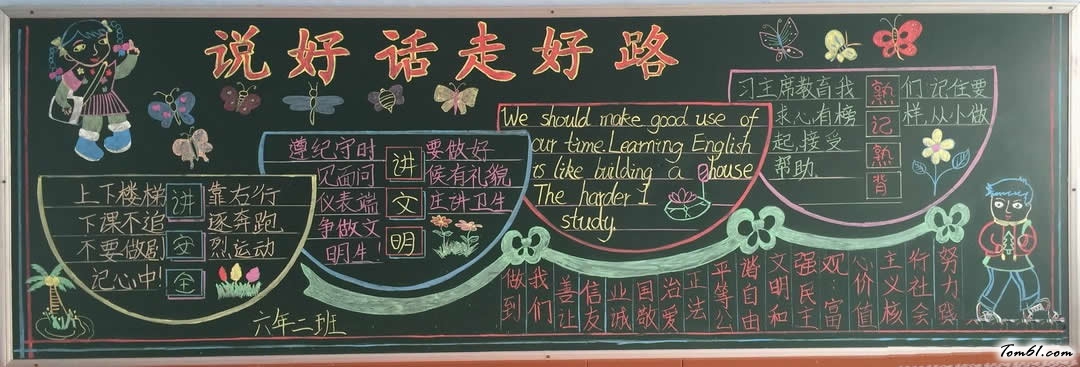 说好话走好路
上下楼梯 讲 靠右行
下课不追 安 逐奔跑
不要做剧 烈运动
记心中! 全
遵纪守时 讲 要做好
见面问 候有礼貌
仪表端 文 庄讲卫生
争做文 明
明生!
We should make good use of
our time.Learning English
is like building a house
The harder I
study.
习主席教育我 熟 们记住要
求心有榜 记 样,从小做
起,接受 熟
帮助 背
努力践
行社会
主义核
心价值
观:富
强民主
文明和
谐自由
平等公
正法
治爱
国敬
业诚
信友
善让
我们
做到
六年二班
Tom61.com